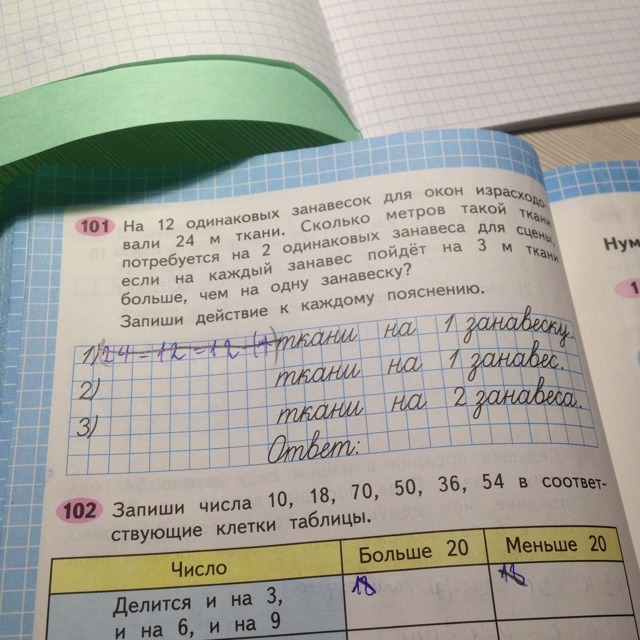 101 На 12 одинаковых занавесок для окон израсходо-
вали 24 м ткани. Сколько метров такой ткани
потребуется на 2 одинаковых занавеса для сцены,
если на каждый занавес пойдёт на 3 м ткани
больше, чем на одну занавеску?
Запиши действие к каждому пояснению.
1) 24 - 12 = 12 ткани на 1 занавеску.
2) ткани на 1 занавес.
3) ткани на 2 занавеса.
Ответ:
102 Запиши числа 10, 18, 70, 50, 36, 54 в соответ-
ствующие клетки таблицы.
Число Больше 20 Меньше 20
Делится и на 3, 18 18
и на 6, и на 9
Нум
1